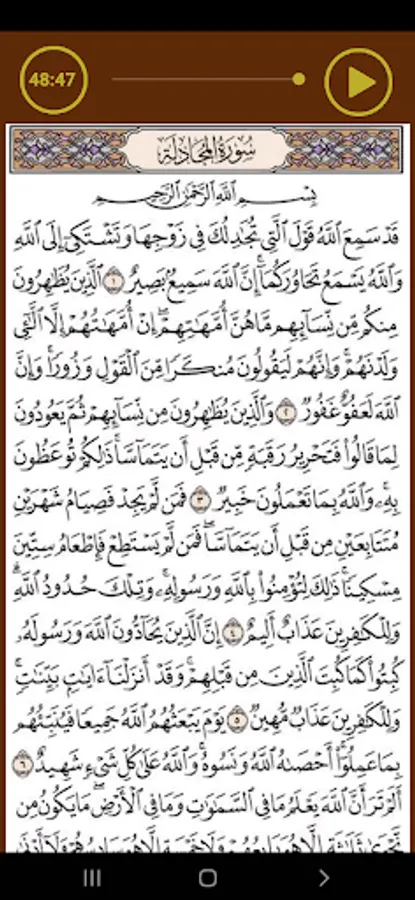 48:47
سُورَةُ المُجَادلَة
بِسْمِ ٱللَّهِ ٱلرَّحْمَٰنِ ٱلرَّحِيمِ
قَدْ سَمِعَ ٱللَّهُ قَوْلَ ٱلَّتِى تُجَٰدِلُكَ فِى زَوْجِهَا وَتَشْتَكِىٓ إِلَى ٱللَّهِ
وَٱللَّهُ يَسْمَعُ تَحَاوُرَكُمَآ ۚ إِنَّ ٱللَّهَ سَمِيعٌۢ بَصِيرٌ ١ ٱلَّذِينَ يُظَٰهِرُونَ
مِنكُم مِّن نِّسَآئِهِم مَّا هُنَّ أُمَّهَٰتِهِمْ ۖ إِنْ أُمَّهَٰتُهُمْ إِلَّا ٱلَّٰٓـِٔى
وَلَدْنَهُمْ ۚ وَإِنَّهُمْ لَيَقُولُونَ مُنكَرًا مِّنَ ٱلْقَوْلِ وَزُورًا ۚ وَإِنَّ
ٱللَّهَ لَعَفُوٌّ غَفُورٌ ٢ وَٱلَّذِينَ يُظَٰهِرُونَ مِن نِّسَآئِهِمْ ثُمَّ يَعُودُونَ
لِمَا قَالُوا۟ فَتَحْرِيرُ رَقَبَةٍ مِّن قَبْلِ أَن يَتَمَآسَّا ۚ ذَٰلِكُمْ تُوعَظُونَ
بِهِۦ ۚ وَٱللَّهُ بِمَا تَعْمَلُونَ خَبِيرٌ ٣ فَمَن لَّمْ يَجِدْ فَصِيَامُ شَهْرَيْنِ
مُتَتَابِعَيْنِ مِن قَبْلِ أَن يَتَمَآسَّا ۖ فَمَن لَّمْ يَسْتَطِعْ فَإِطْعَامُ سِتِّينَ
مِسْكِينًا ۚ ذَٰلِكَ لِتُؤْمِنُوا۟ بِٱللَّهِ وَرَسُولِهِۦ ۚ وَتِلْكَ حُدُودُ ٱللَّهِ ۗ
وَلِلْكَٰفِرِينَ عَذَابٌ أَلِيمٌ ٤ إِنَّ ٱلَّذِينَ يُحَآدُّونَ ٱللَّهَ وَرَسُولَهُۥ
كُبِتُوا۟ كَمَا كُبِتَ ٱلَّذِينَ مِن قَبْلِهِمْ ۚ وَقَدْ أَنزَلْنَآ ءَايَٰتٍۭ بَيِّنَٰتٍ ۚ
وَلِلْكَٰفِرِينَ عَذَابٌ مُّهِينٌ ٥ يَوْمَ يَبْعَثُهُمُ ٱللَّهُ جَمِيعًا فَيُنَبِّئُهُم
بِمَا عَمِلُوٓا۟ ۚ أَحْصَىٰهُ ٱللَّهُ وَنَسُوهُ ۚ وَٱللَّهُ عَلَىٰ كُلِّ شَىْءٍ شَهِيدٌ ٦
أَلَمْ تَرَ أَنَّ ٱللَّهَ يَعْلَمُ مَا فِى ٱلسَّمَٰوَٰتِ وَمَا فِى ٱلْأَرْضِ ۖ مَا يَكُونُ مِن
نَّجْوَىٰ ثَلَٰثَةٍ إِلَّا هُوَ رَابِعُهُمْ وَلَا خَمْسَةٍ إِلَّا هُوَ سَادِسُهُمْ وَلَآ أَدْنَىٰ